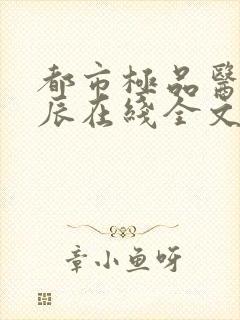 都市極品醫
辰在綫全文
章小魚呀